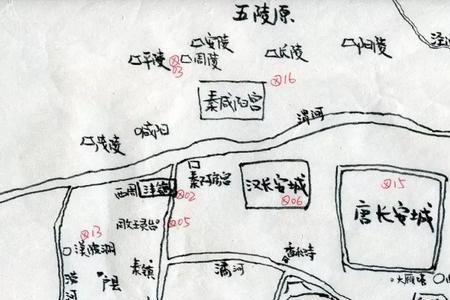 五陵原
安陵
平陵
03
周陵
长陵
阳陵
16
秦咸阳宫
渭河
咸阳
茂陵
秦阿房宫
西周
沣镐
02
汉长安城
06
15
唐长安城
05
13
渼陂湖
户县
秦镇
滈河
香积寺
大雁塔
涝河